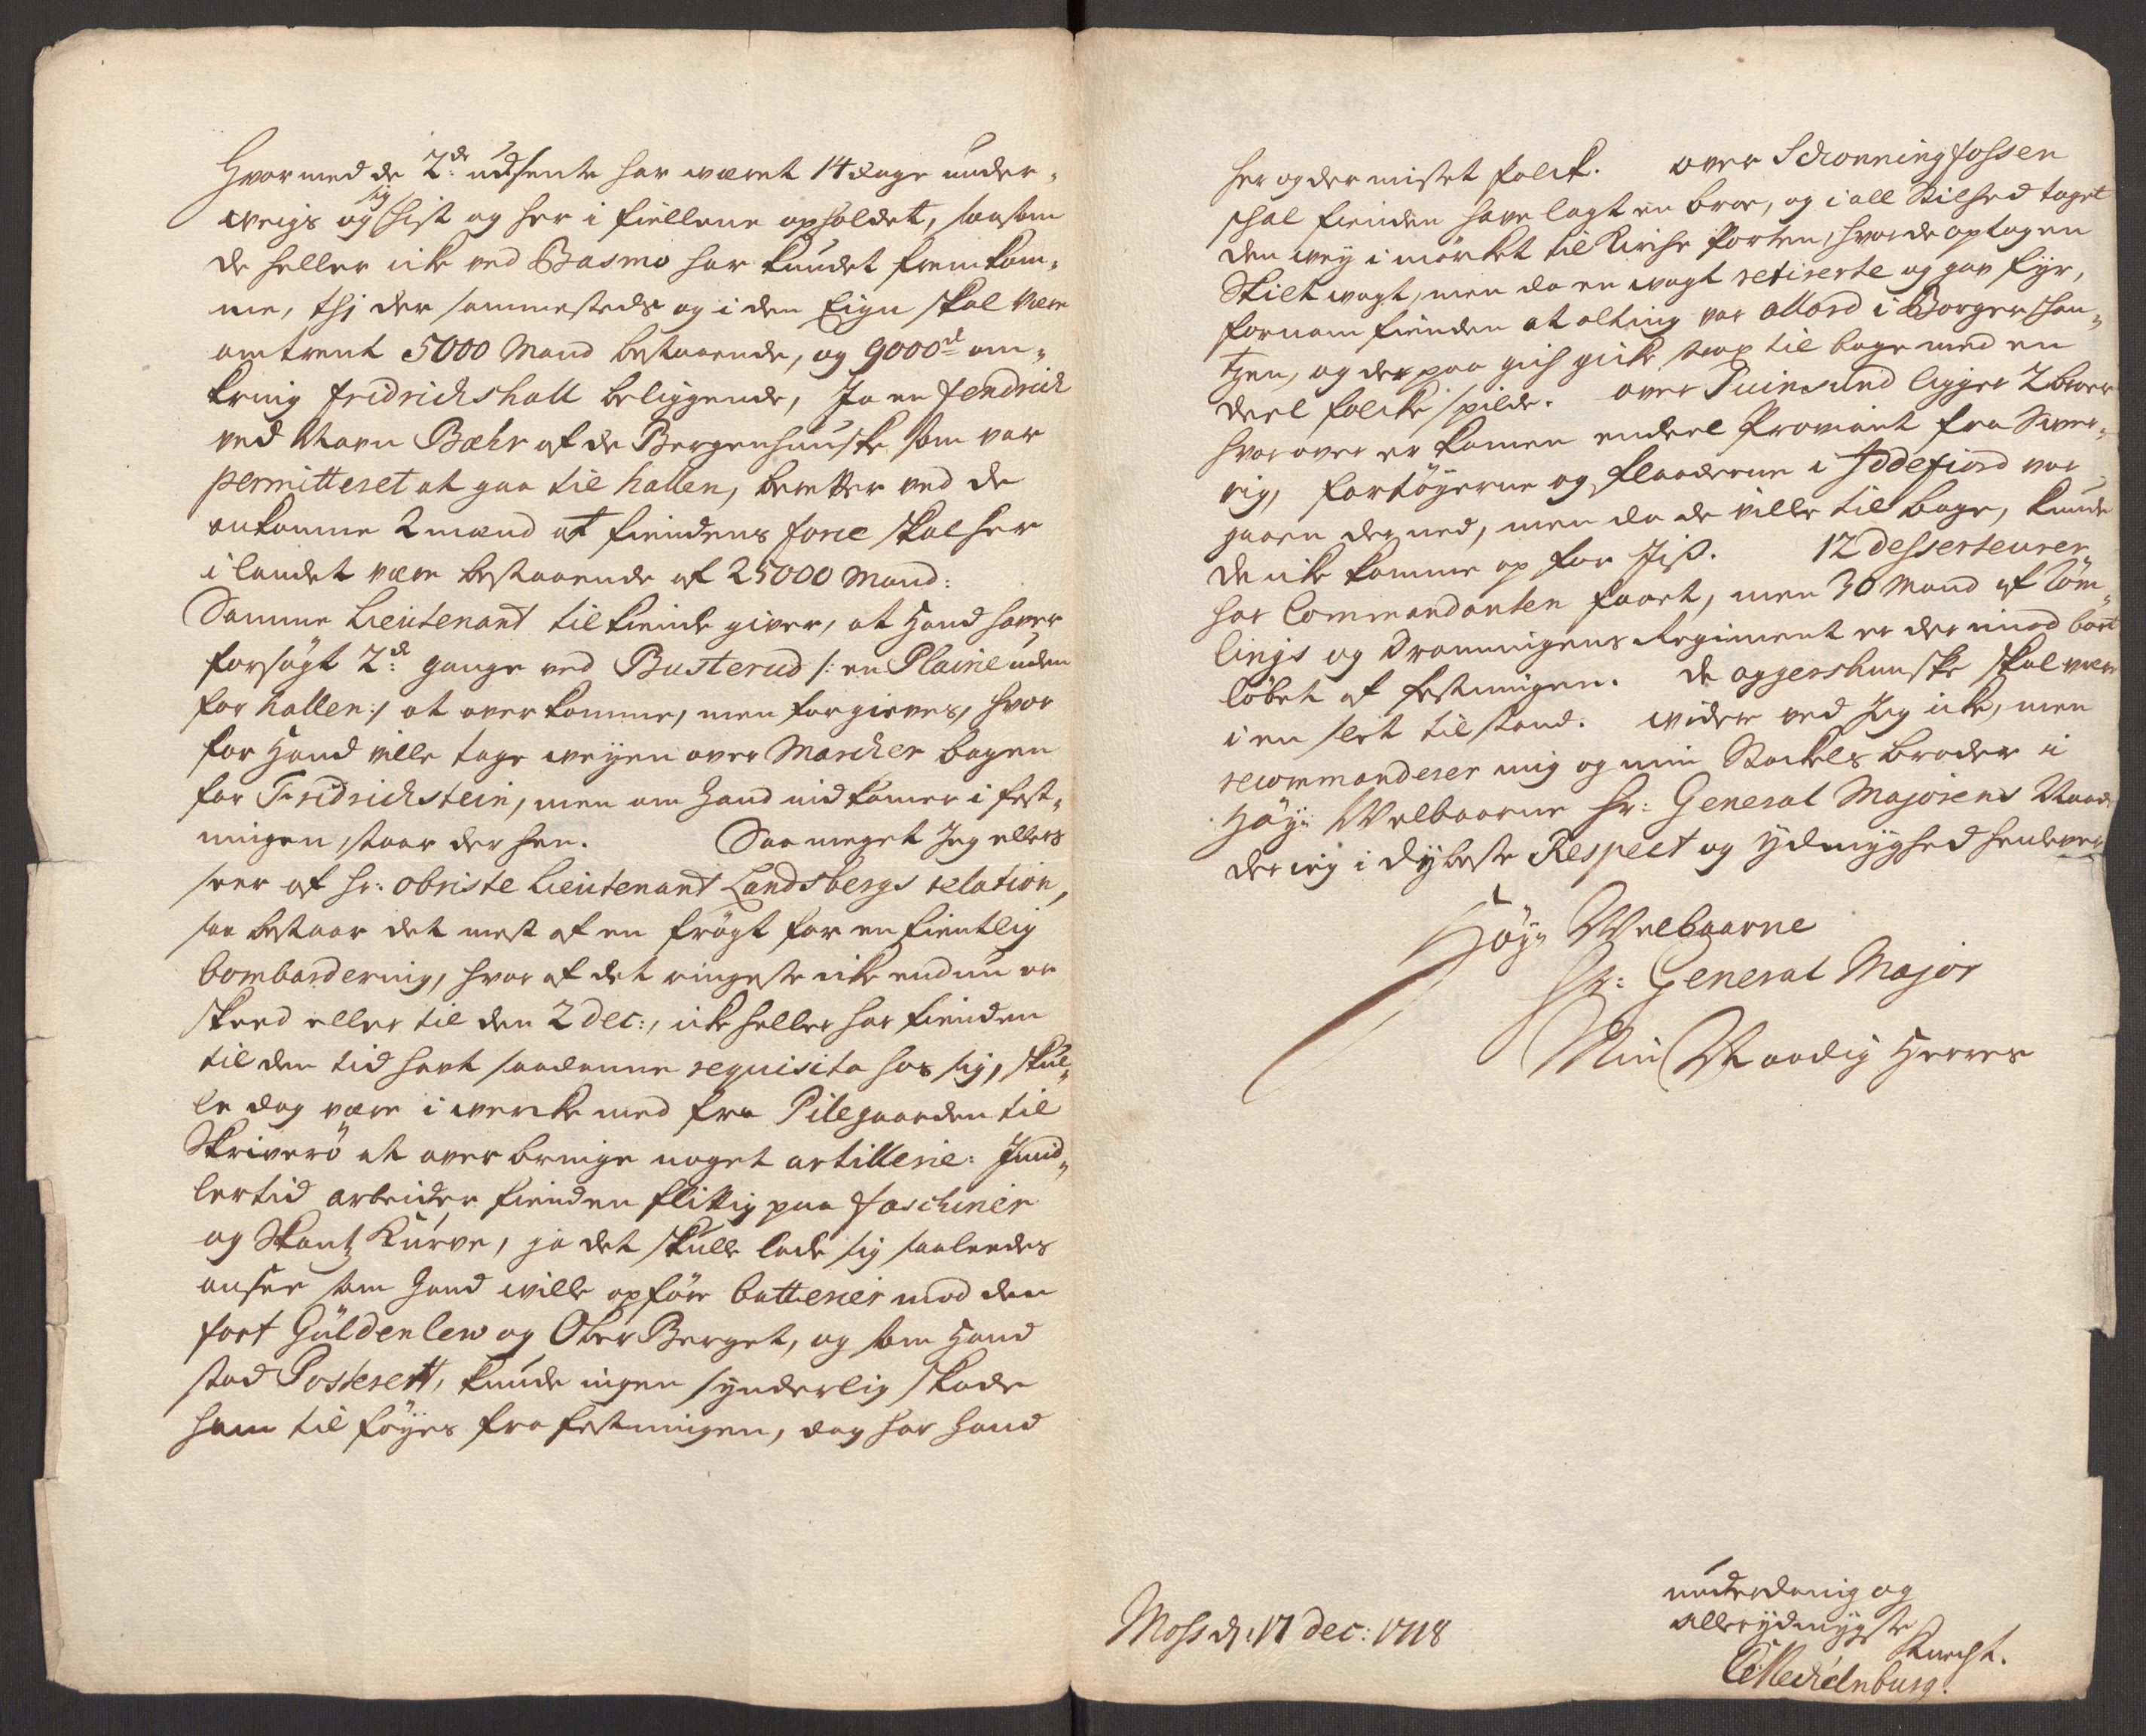 Hvormed de 2de udsente har wæret 14 dage under-
weigs og sig hist og her i fiellene opholdet, saasom
de heller icke ved Basmo har kundet fremkom-
me, thj der sammesteds og i den Eign skal være
omtrent 5000 Mand bestaaende, og 9000d om-
kring Fridrichshall beliggende, Ja en fendrich
ved Navn Bæhr af de Bergenhuuske som var
permitteret at gaa til hallen, beretter ved de
ankomne 2 mænd at fiendens force skal her
i landet være bestaaende af 25000 Mand:
Samme Lieutenant tilkiende giver, at Hand haver
forsøgt 2de gange ved Busterud /: en Plaine uden
for hallen:/ at overkomme, men forgieves, hvor
for Hand ville tage weyen over Marcker bagen
for Fridrichstein, men om Hand indkomer i fest-
ningen, staar der hen. Saa meget Jeg ellers
seer af hr: obriste Lieutenant Landsbergs relation,
saa bestaar det mest af en frøgt for en fientlig
bombardering, hvor af det ringeste icke endnu er
skeed eller til den 2 dec:, icke heller har fienden
til den tid havt saadanne requisita hos sig, skul-
le dog være i wercke med fra Pilegaarden til
Skriverö at overbringe noget artillerie: Jmid-
lertid arbeider fienden flittig paa faschiner
og Skantz Kurve, ja det skulle lade sig saaledes
ansee som Hand wille opføre batterier mod den
fort Güldenlew og OberBerget, og som Hand
stod Posteret, kunde ingen synderlig skade
ham til føyes fra festningen, dog har Hand
her og der mistet folck. over Schonningfossen
schal fienden have lagt en broe, og i all Stilhed taget
den wey i mörket til Kirche Porten, hvor de optog en
Skilt wagt, men da en wagt retirerte og gav fyr,
fornam fienden at alting var allard i Borger Skan-
tzen, og der paa gich gicke strax til bage med en
deel folcke spilde. over Suinesund ligger 2 broer
hvorover er kommen endeel Proviant fra Swer-
rig, fartöyerne og flaaderne i Iddefiord var
gaaen der ned, men da de ville tilbage, kunde
de icke komme op for Jiss. 12 desserteurer
har Commandanten faaet, men 30 Mand af Cöm-
lings og Dronningens Regiment er der imod bort
løbet af festningen. de aggershuuske skal være
i en slet tilstand. wider ved Jeg icke, men
recommanderer mig og min Stackels broder i
Høy: Welbaarne hr: General Majorens Naade
der ieg i dybeste Respect og ydmyghed henlever
Høy: Welbaarne
Hr: General Major
Min Naadig Herres
underdanig og
allerydmygste
Knecht.
Moss d: 17 dec: 1718
Mechlenburg.